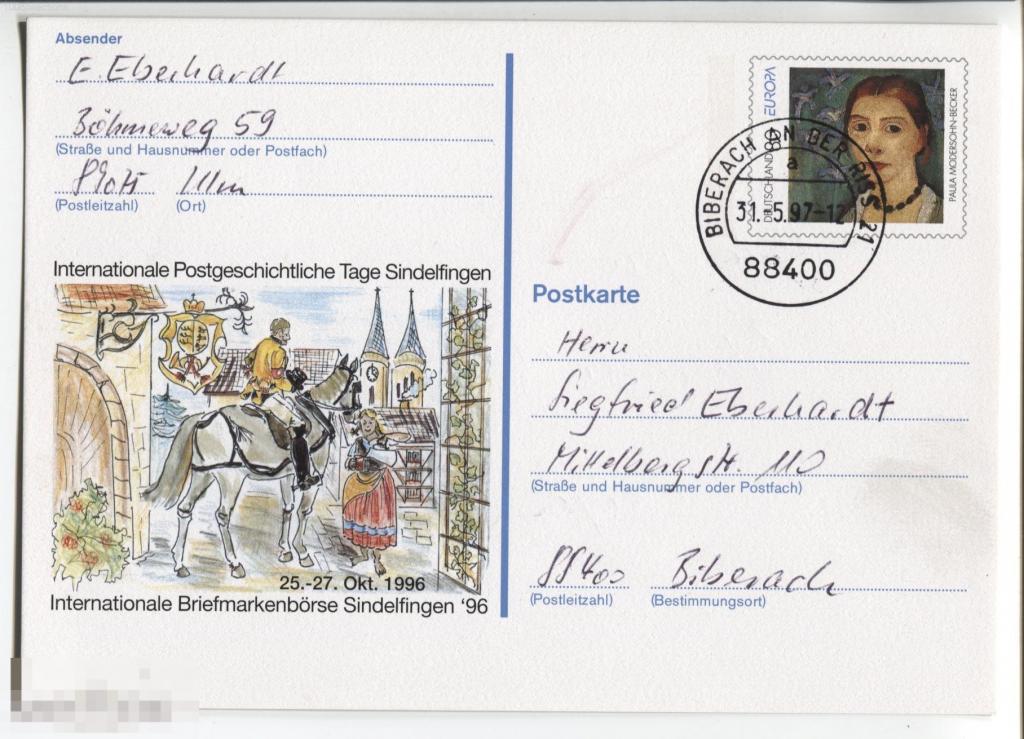 Absender
E. Eberhardt
Böhmeweg 59
(Straße und Hausnummer oder Postfach)
Ulm
(Postleitzahl) (Ort)
Internationale Postgeschichtliche Tage Sindelfingen
25.-27. Okt. 1996
Internationale Briefmarkenbörse Sindelfingen '96
EUROPA
DEUTSCHLAND
PAULA MODERSOHN-BECKER
BIBERACH AN DER RISS 21
a
31.-5.97-12
88400
Postkarte
Herrn
Siegfried Eberhardt
Mittelbergstr. 110
(Straße und Hausnummer oder Postfach)
88400 Biberach
(Postleitzahl) (Bestimmungsort)